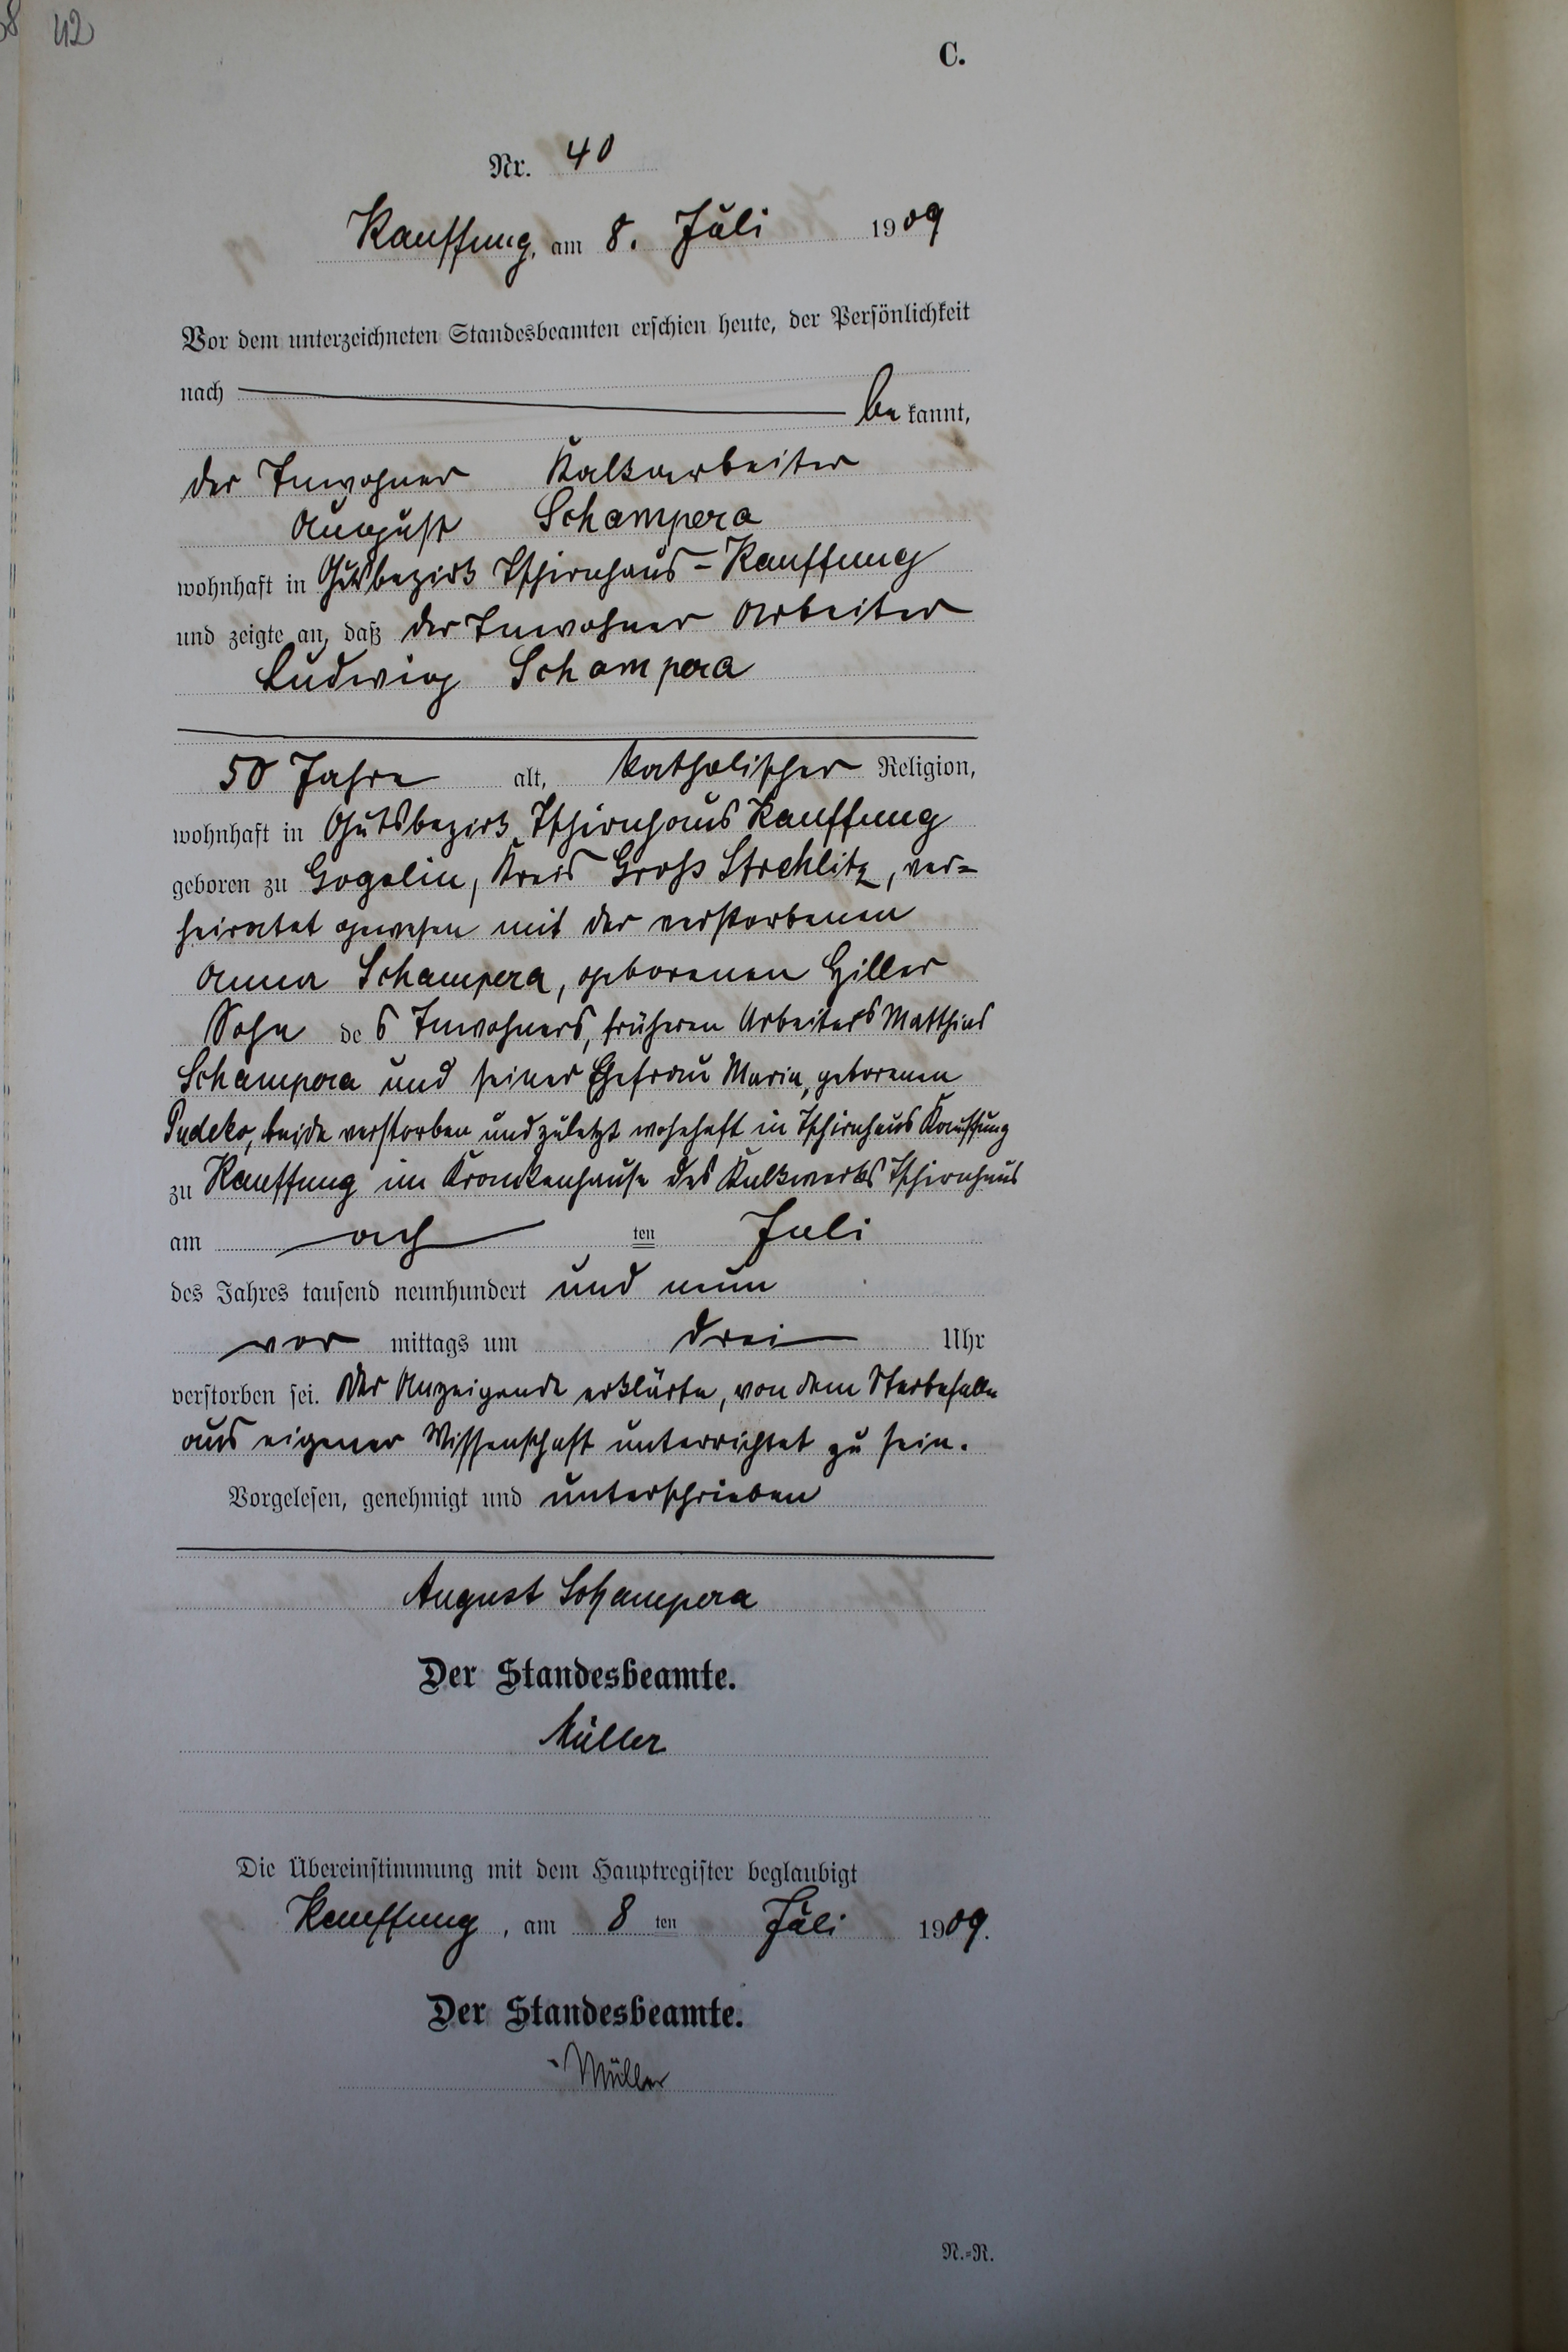 42
C.
Nr. 40
Kauffung, am 8. Juli 1909
Vor dem unterzeichneten Standesbeamten erschien heute, der Persönlichkeit
nach be kannt,
der Inwohner Kalkarbeiter
August Schampera
wohnhaft in Gutsbezirk Tschirnhaus-Kauffung
und zeigte an, daß der Inwohner Arbeiter
Ludwig Schampera
50 Jahre alt, katholischer Religion,
wohnhaft in Gutsbezirk Tschirnhaus Kauffung
geboren zu Gogolin, Kreis Groß Strehlitz, ver=
heiratet gewesen mit der verstorbenen
Anna Schampera, geborenen Hiller
Sohn des Inwohners, früheren Arbeiters Matthias
Schampera und seiner Ehefrau Maria, geborenen
beide verstorben und zuletzt wohnhaft in Tschirnhaus Kauffung
zu Kauffung im Krankenhause des Kalkwerks Tschirnhaus
am ach ten Juli
des Jahres tausend neunhundert und neun
vor mittags um drei Uhr
verstorben sei. Der Anzeigende erklärte, von dem Sterbefalle
aus eigener Wissenschaft unterrichtet zu sein.
Vorgelesen, genehmigt und unterschrieben
August Schampera
Der Standesbeamte.
Müller
Die Übereinstimmung mit dem Hauptregister beglaubigt
Kauffung, am 8 ten Juli 1909.
Der Standesbeamte.
Müller
N.=R.